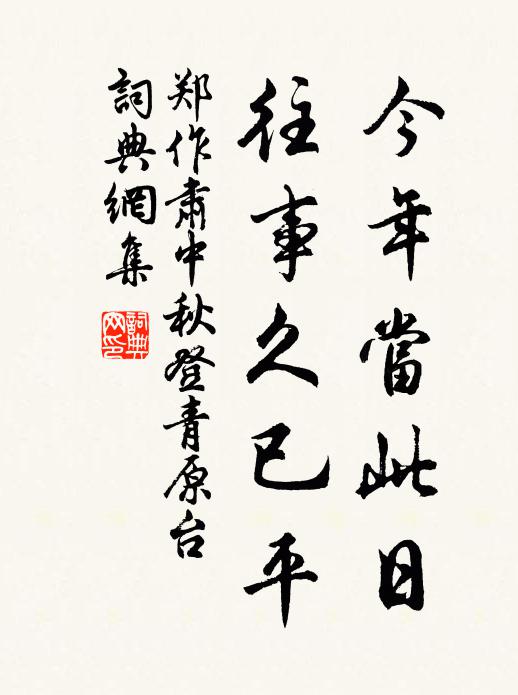 今年當此日
往事久已平
郑作肅中秋登青原台
詞典網集
詞典
网印